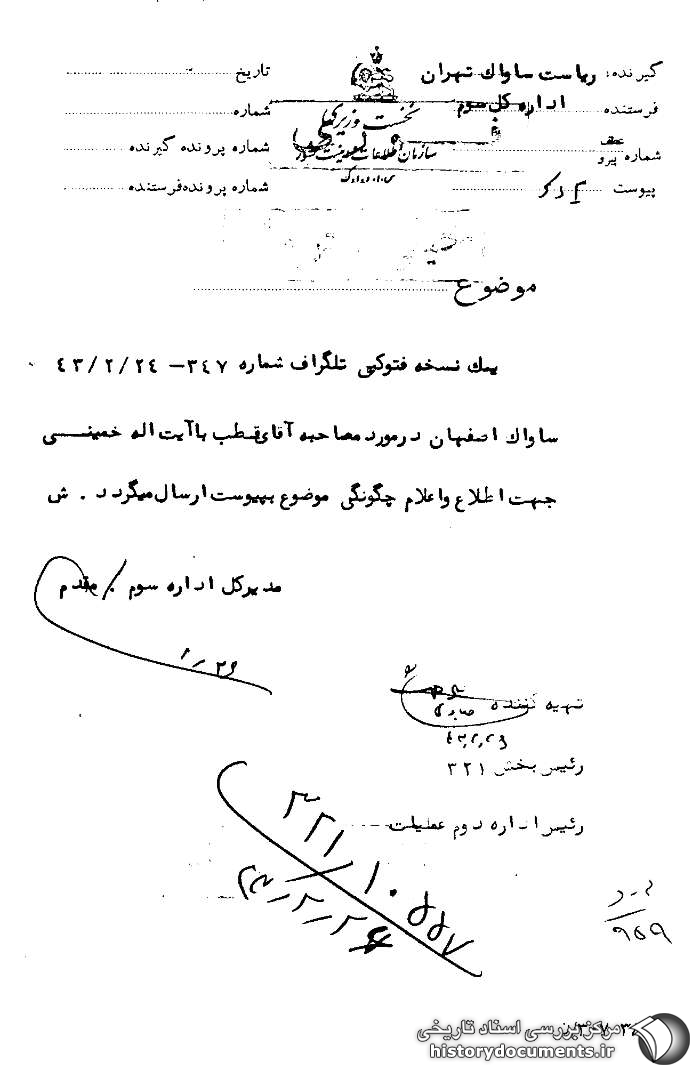 گیرنده: ریاست ساواک تهران
فرستنده اداره کل سوم
شماره پیرو
پیوست
نخست وزیری
سازمان اطلاعات و امنیت کشور
س.ا.و.ا.ک
تاریخ
شماره
شماره پرونده گیرنده
شماره پرونده فرستنده
موضوع
یک نسخه فتوکپی تلگراف شماره ۳۴۷ – ۴۳/۲/۲۴
ساواک اصفهان در مورد مصاحبه آقای قطب با آیت اله خمینی
جهت اطلاع و اعلام چگونگی موضوع بپیوست ارسال میگردد . ش
مدیر کل اداره سوم . مقدم
تهیه کننده
رئیس بخش ۳۲۱
رئیس اداره دوم عملیات
۳۲۱/۱۰۵۵۷
۹۵۹
مرکز بررسی اسناد تاریخی
historydocuments.ir